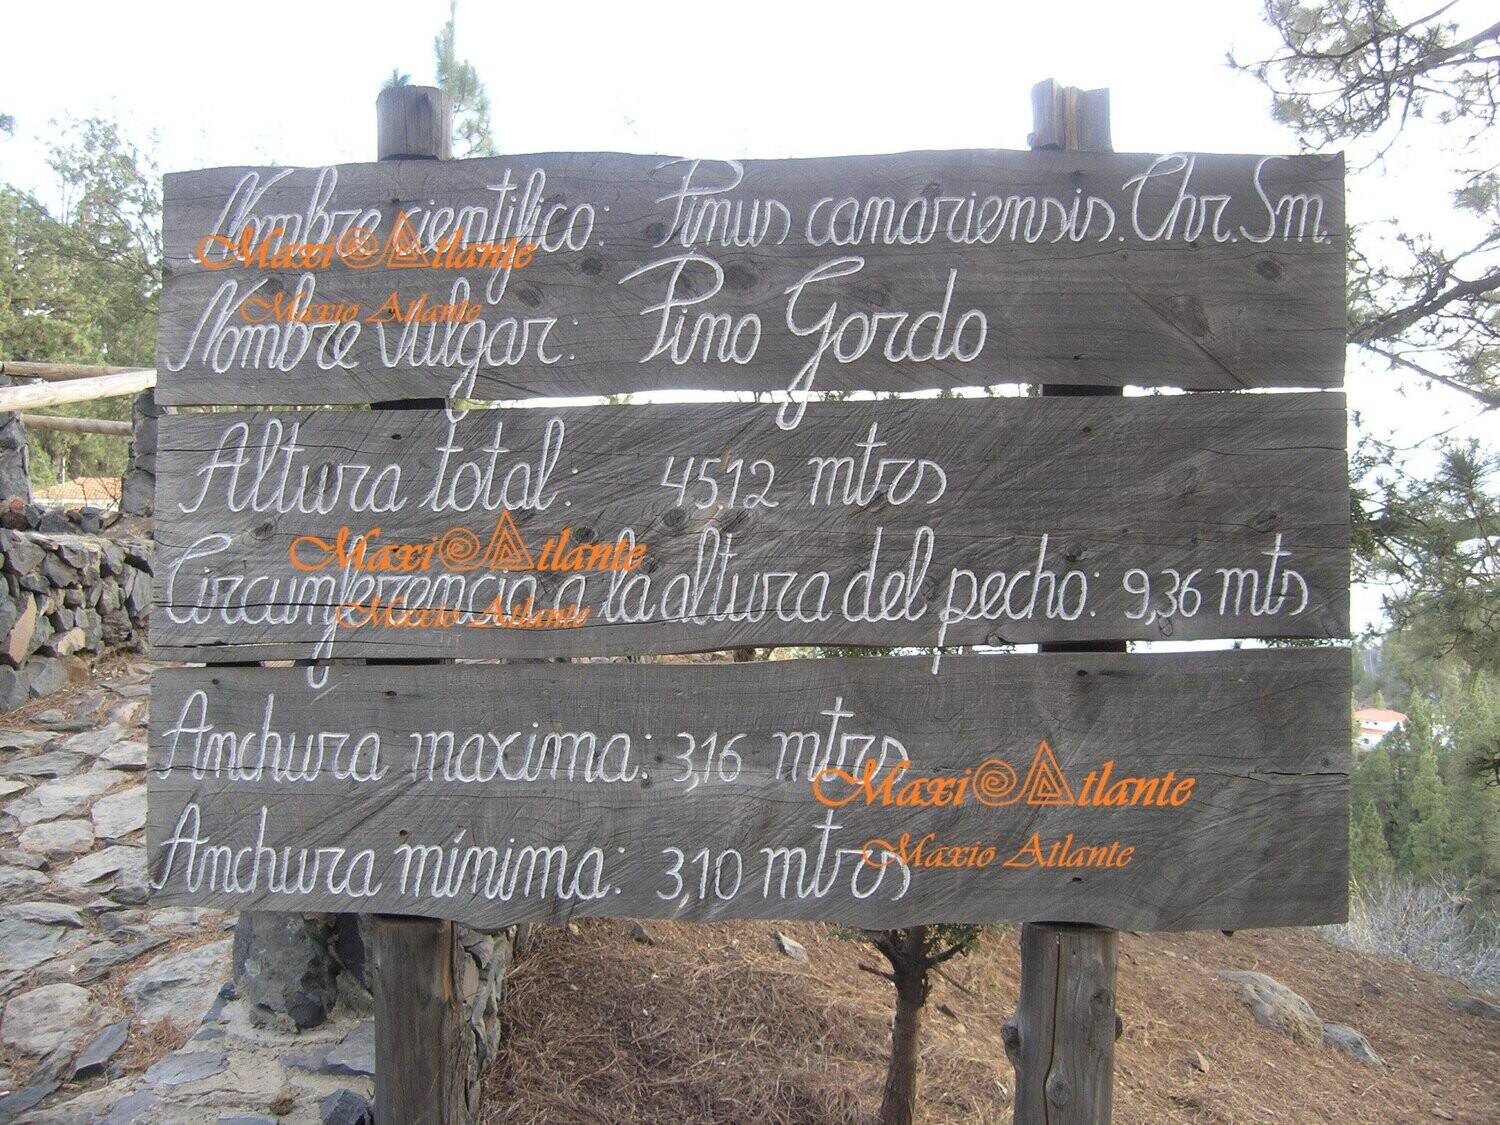 Nombre científico: Pinus canariensis. Chr. Sm.
Maxio Atlante
Maxio Atlante
Nombre Vulgar: Pino Gordo
Altura total: 45,12 mtrs
Maxio Atlante
Circunferencia a la altura del pecho: 9,36 mts
Maxio Atlante
Anchura maxima: 3,16 mtrs
Maxio Atlante
Anchura mínima: 3,10 mtrs
Maxio Atlante